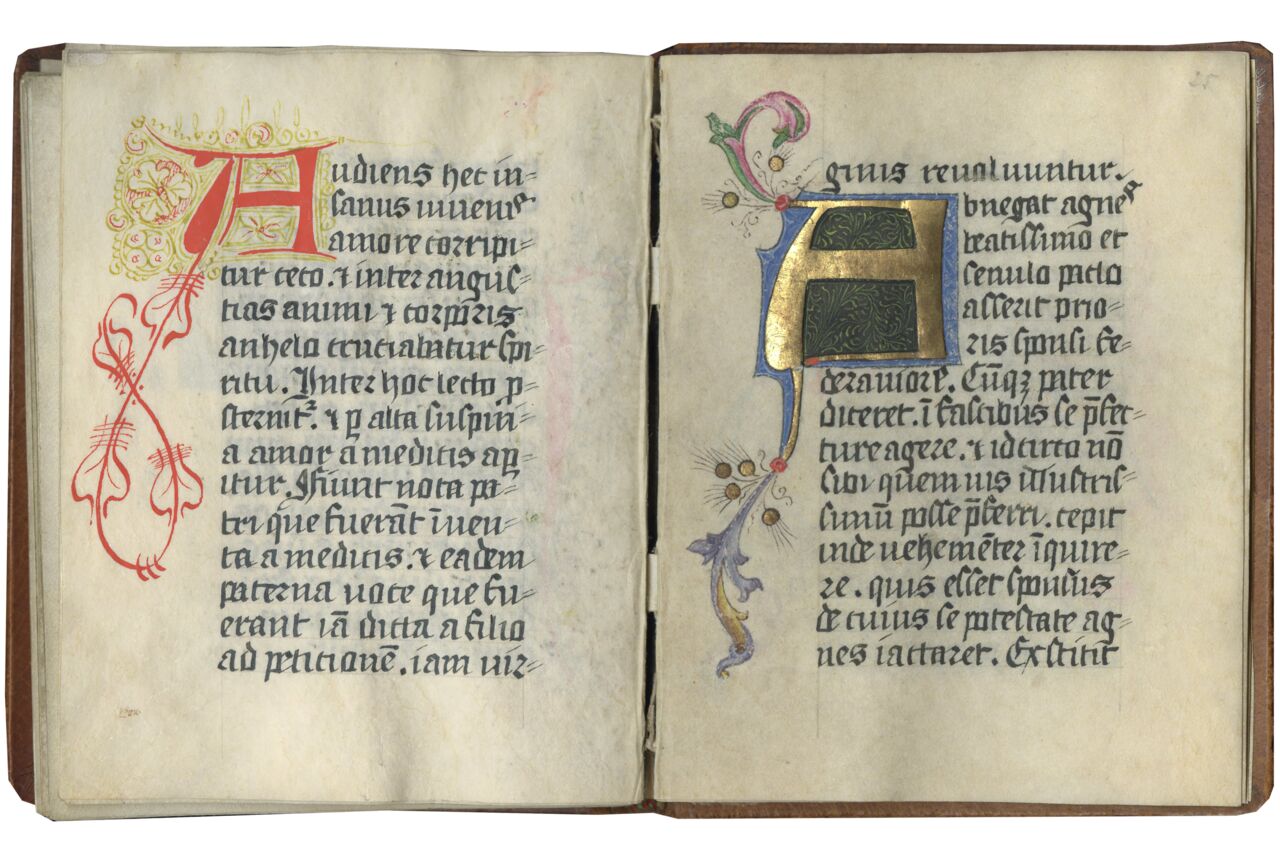 Audiens hec in=
sanus iuuenis
amore corripi=
tur ceco. ⁊ inter angus=
tias animi ⁊ corporis
anhelo cruciabatur spi=
ritu. Inter hoc lecto p=
sternit᷑. ⁊ ꝑ alta suspiri=
a amor a medicis apꝑ
itur. Fiunt nota pa=
tri que fuerāt īuen=
ta a medicis. ⁊ eadem
paterna uoce que fu=
erant iā dicta a filio
ad peticionē. iam uir=
25
ginis reuoluuntur.
Abnegat agnes
beatissimo et
senulo pacto
asserit prio=
ris sponsi fe=
dera uiolare. Cūqꝫ pater
diceret. ī fascibus se p̄fec=
ture agere. ⁊ idcirco nō
sibi quem uis illustris=
simū posse p̄ferri. cepit
inde uehemēter īquire=
re. quis esset sponsus
de cuius se potestate ag=
nes iactaret. Exstitit